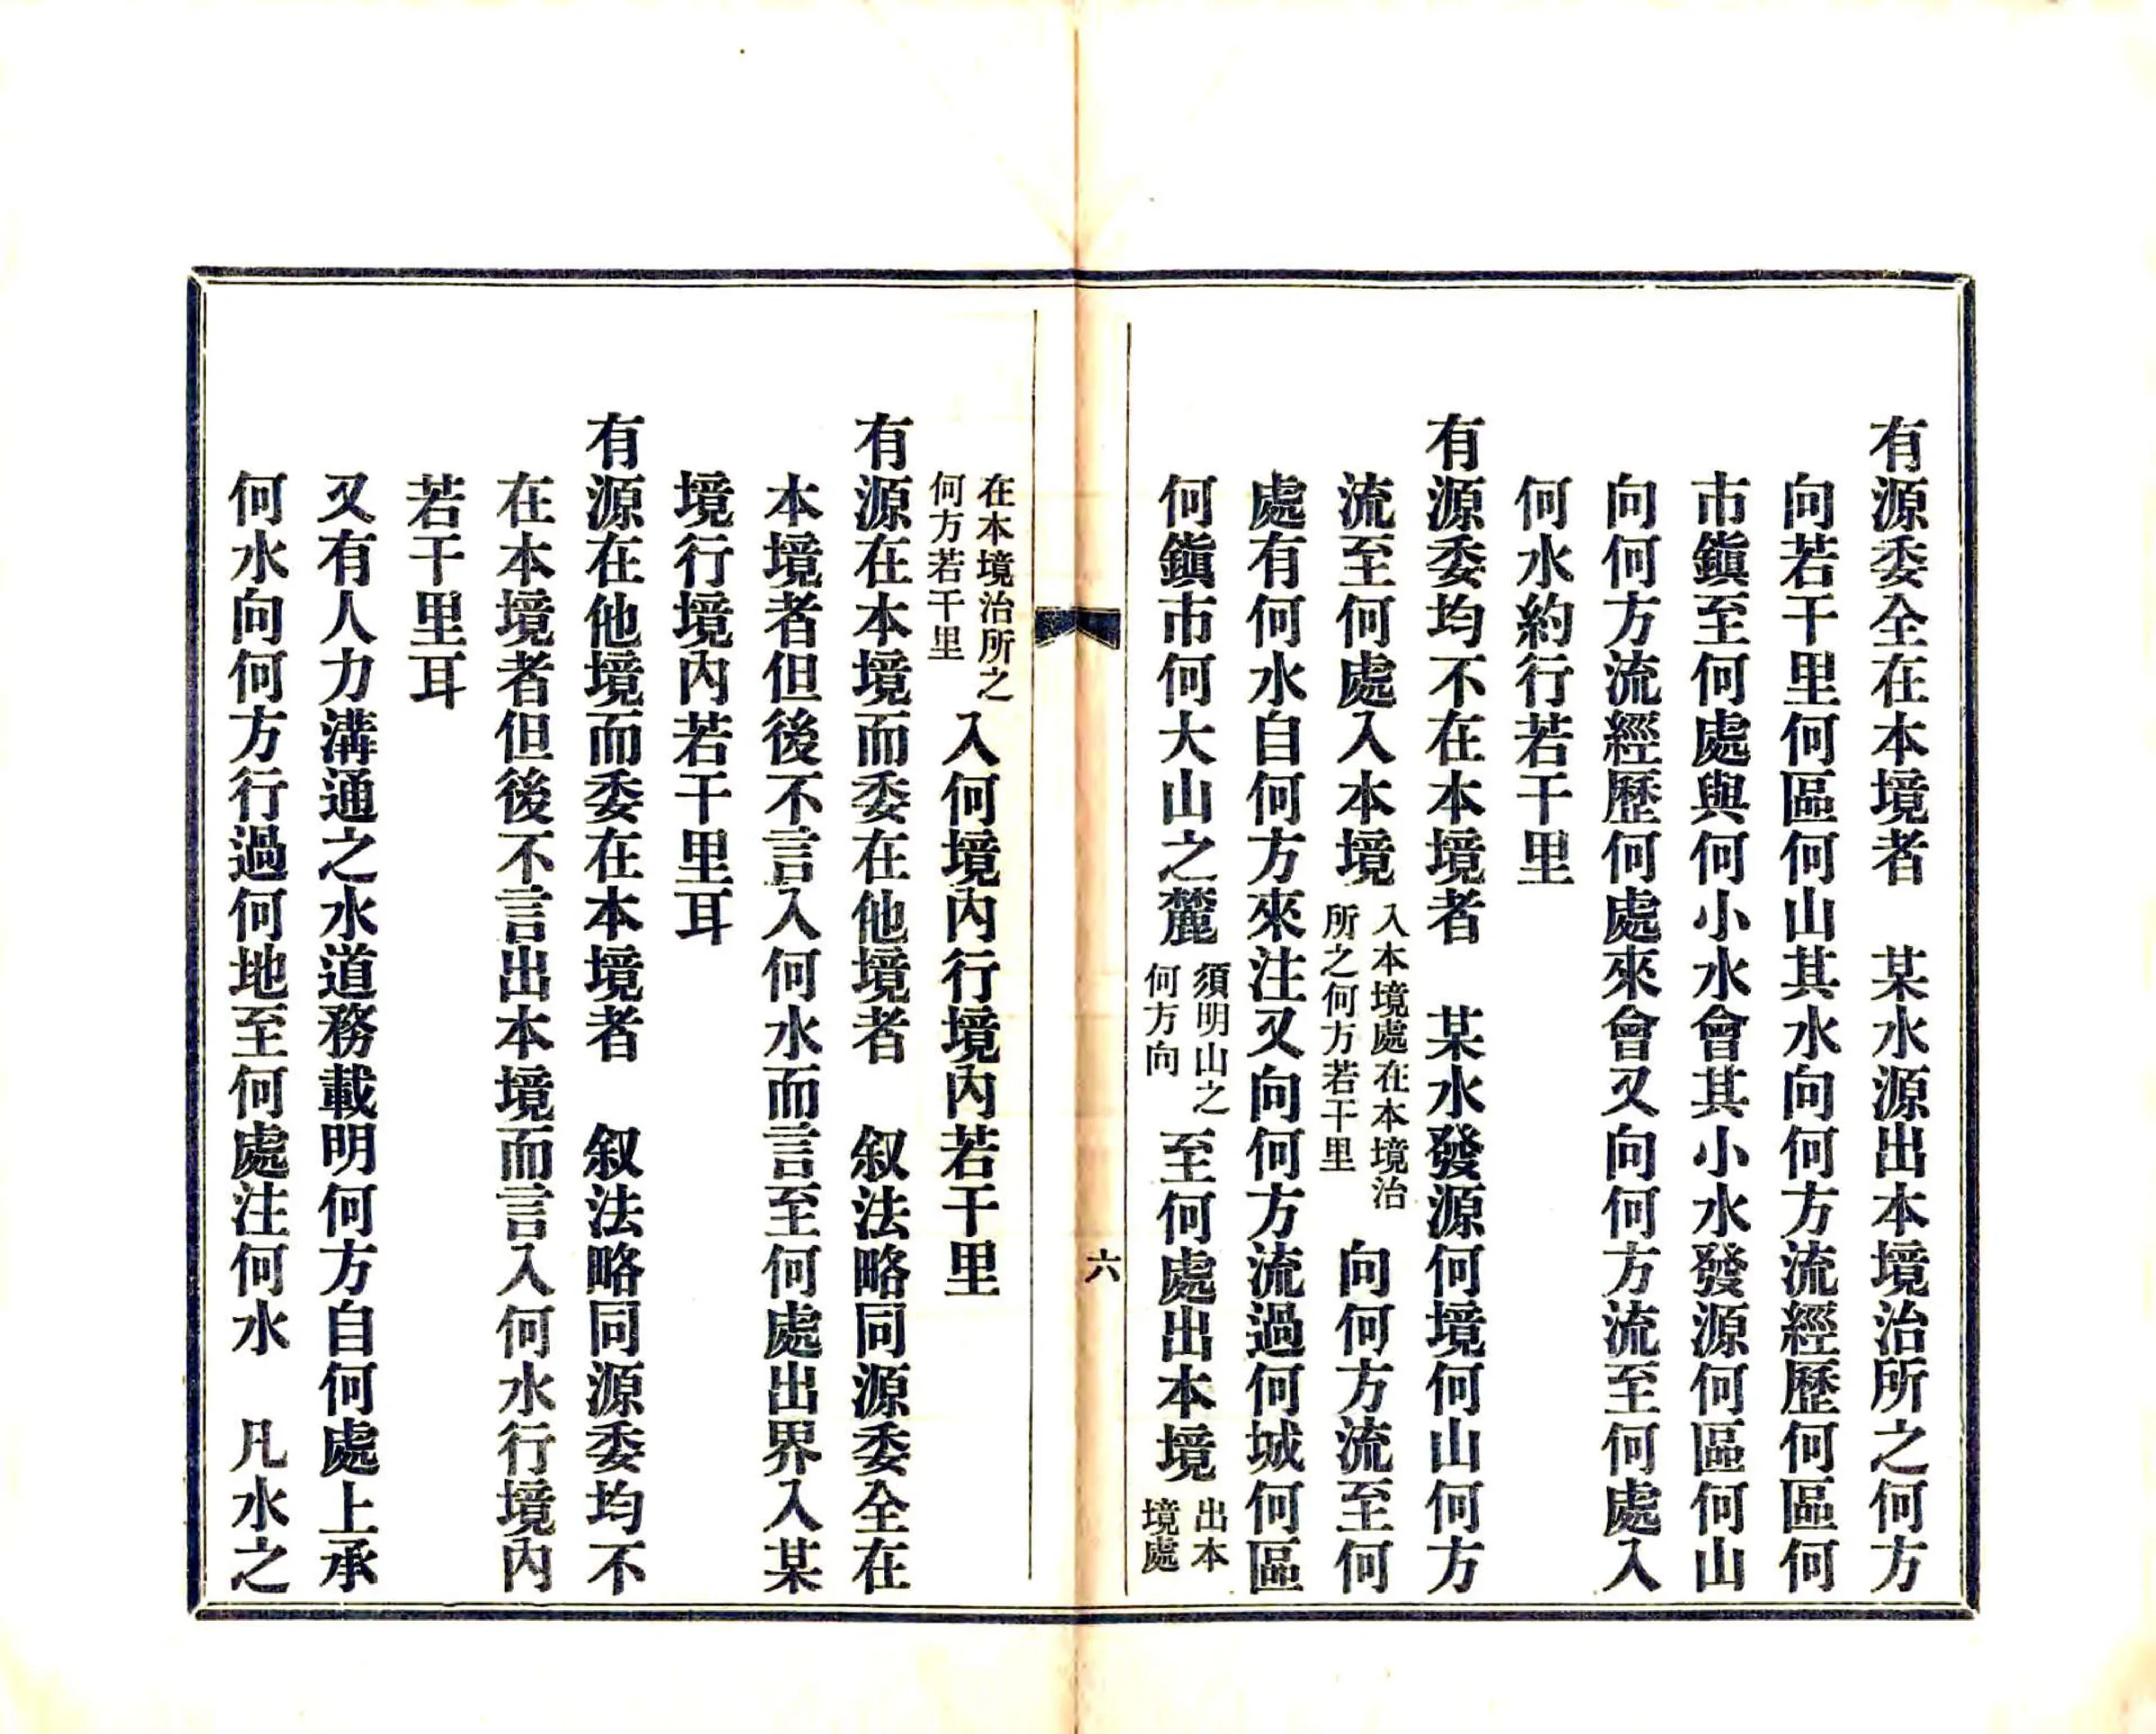 有源委全在本境者　某水源出本境治所之何方
向若干里何區何山其水向何方流經歷何區何
市鎭至何處與何小水會其小水發源何區何山
向何方流經歷何處來會又向何方流至何處入
何水約行若干里
有源委均不在本境者　某水發源何境何山何方
流至何處入本境入本境處在本境治所之何方若干里向何方流至何
處有何水自何方來注又向何方流過何城何區
何鎭市何大山之麓須明山之何方向至何處出本境出本境處
六
在本境治所之何方若干里入何境內行境內若干里
有源在本境而委在他境者　叙法略同源委全在
本境者但後不言入何水而言至何處出界入某
境行境內若干里耳
有源在他境而委在本境者　叙法略同源委均不
在本境者但後不言出本境而言入何水行境內
若干里耳
又有人力溝通之水道務載明何方自何處上承
何水向何方行過何地至何處注何水　凡水之